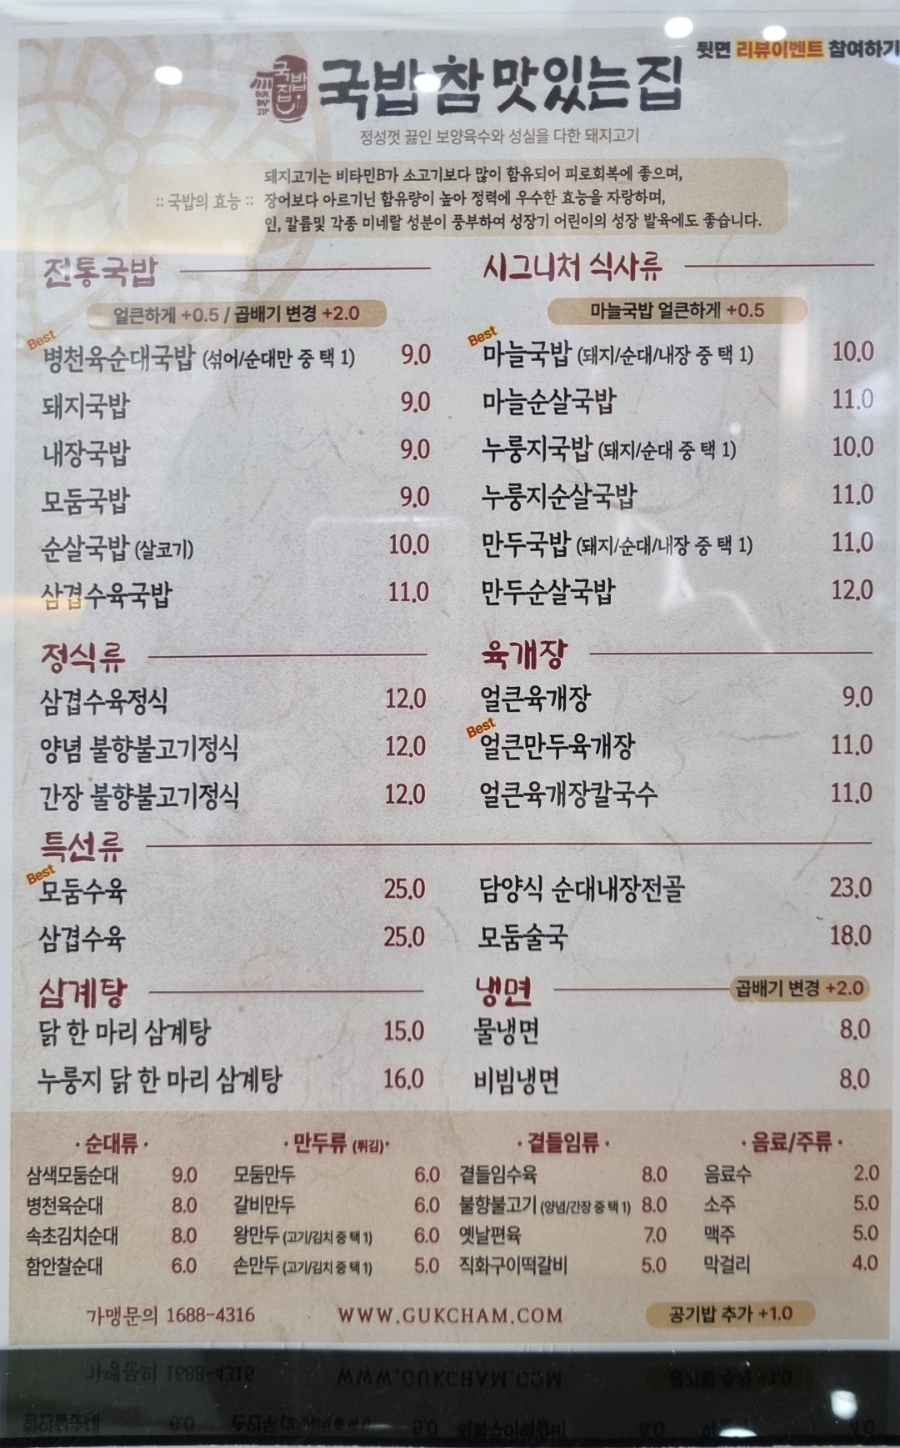 뒷면 리뷰이벤트 참여하기
국밥참맛있는집
정성껏 끓인 보양육수와 성심을 다한 돼지고기
:: 국밥의 효능 ::
돼지고기는 비타민B가 소고기보다 많이 함유되어 피로회복에 좋으며,
장어보다 아르기닌 함유량이 높아 정력에 우수한 효능을 자랑하며,
인, 칼륨및 각종 미네랄 성분이 풍부하여 성장기 어린이의 성장 발육에도 좋습니다.
전통국밥
얼큰하게 +0.5 / 곱배기 변경 +2.0
Best
병천육순대국밥 (섞어/순대만 중 택 1) 9.0
돼지국밥 9.0
내장국밥 9.0
모둠국밥 9.0
순살국밥 (살코기) 10.0
삼겹수육국밥 11.0
시그니처 식사류
마늘국밥 얼큰하게 +0.5
Best
마늘국밥 (돼지/순대/내장 중 택 1) 10.0
마늘순살국밥 11.0
누룽지국밥 (돼지/순대 중 택 1) 10.0
누룽지순살국밥 11.0
만두국밥 (돼지/순대/내장 중 택 1) 11.0
만두순살국밥 12.0
정식류
삼겹수육정식 12.0
양념 불향불고기정식 12.0
간장 불향불고기정식 12.0
육개장
얼큰육개장 9.0
Best
얼큰만두육개장 11.0
얼큰육개장칼국수 11.0
특선류
Best
모둠수육 25.0
삼겹수육 25.0
담양식 순대내장전골 23.0
모둠술국 18.0
삼계탕
닭 한 마리 삼계탕 15.0
누룽지 닭 한 마리 삼계탕 16.0
냉면
곱배기 변경 +2.0
물냉면 8.0
비빔냉면 8.0
·순대류·
삼색모둠순대 9.0
병천육순대 8.0
속초김치순대 8.0
함안찰순대 6.0
·만두류 (튀김)·
모둠만두 6.0
갈비만두 6.0
왕만두 (고기/김치 중 택 1) 6.0
손만두 (고기/김치 중 택 1) 5.0
·곁들임류·
곁들임수육 8.0
불향불고기 (양념/간장 중 택 1) 8.0
옛날편육 7.0
직화구이떡갈비 5.0
·음료/주류·
음료수 2.0
소주 5.0
맥주 5.0
막걸리 4.0
가맹문의 1688-4316
WWW.GUKCHAM.COM
공기밥 추가 +1.0